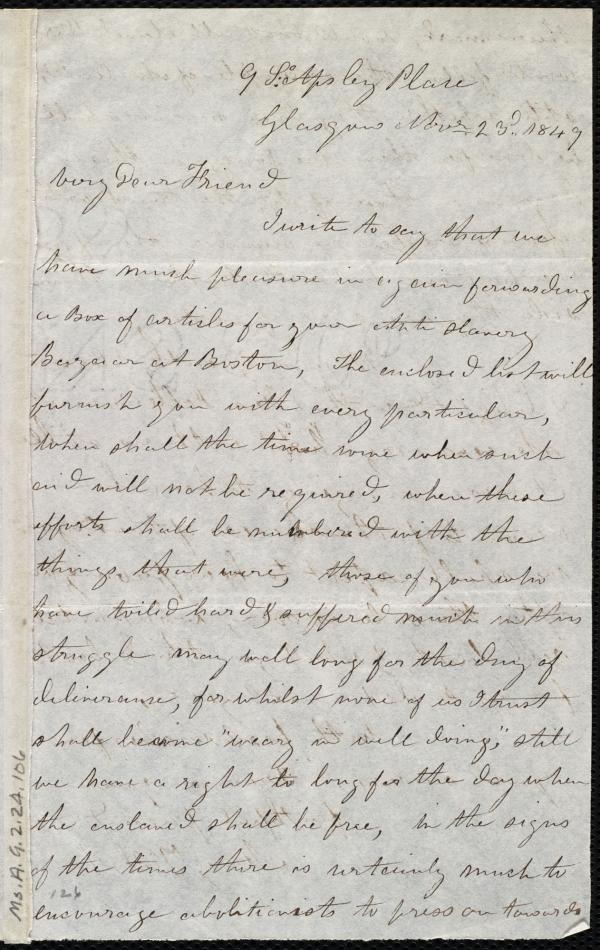 9 So. Apsley Place
Glasgow Novr. 23d. 1849
Very Dear Friend
I write to say that we
have much pleasure in again forwarding
a Box of articles for your Anti Slavery
Bazaar at Boston, The enclosed list will
furnish you with every particular,
When shall the time come when such
aid will not be required, when these
efforts shall be numbered with the
things that were, those of you who
have toiled hard & suffered much in this
struggle may well long for the day of
deliverance, for whilst none of us I trust
shall become "weary in well doing," still
we have a right to long for the day when
the enslaved shall be free, in the signs
of the times there is certainly much to
encourage abolitionists to press on towards
Ms. A. 9. 2. 24. 106
126